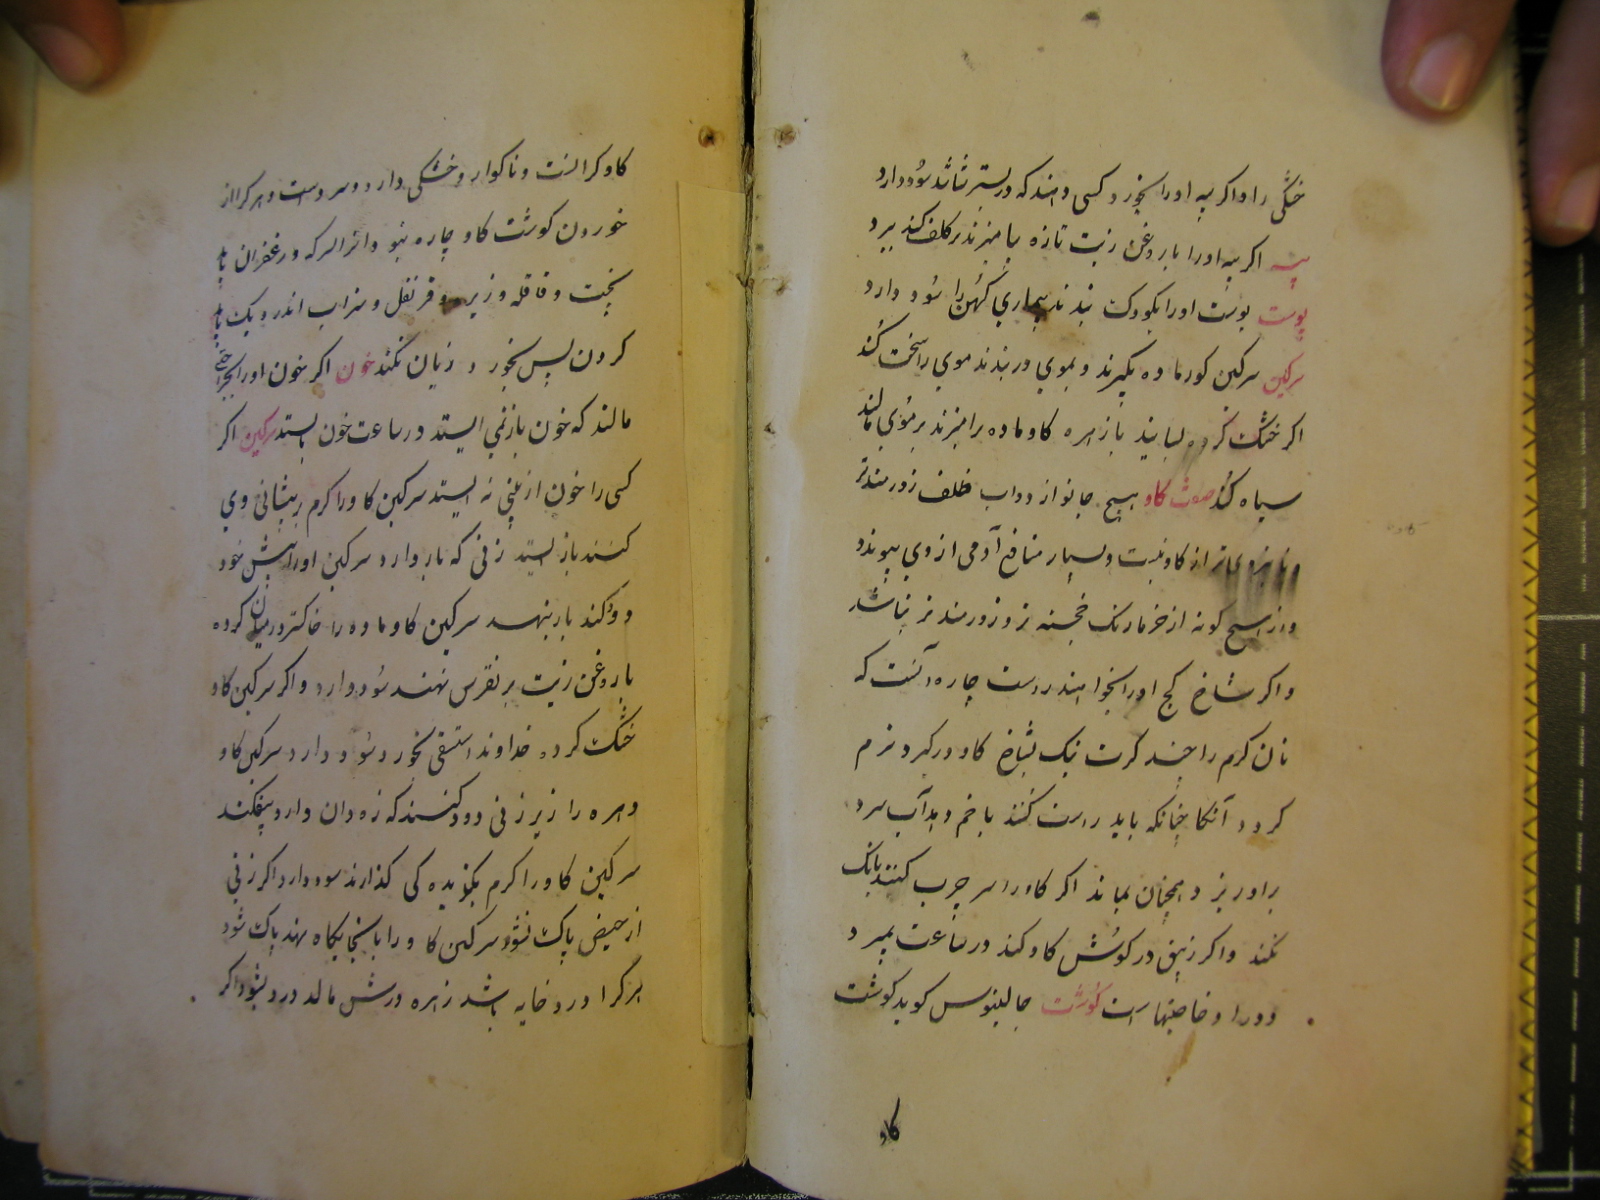 خشکی را و اکر پیه او را بخورد کسی دهند که در بستر شاشد سود دارد
پیه اکر پیه او را با روغن زیت تازه بیامیزند بر کلف کند ببرد
پوست پوست او را بکودک بندند بیماری کهن را سود دارد
سرکین سرکین کور ماده بکیرند و بموی در بندند موی را سخت کند
اکر خشک کرده بسایند با زهره کاو ماده برامیزند بر موی مالند
سیاه کند صفت کاو هیچ جانور از دواب ظلف زورمندتر
از کاو نیست و بسیار منافع آدمی از وی پیوندد
و از هیچ کونه از خرما رنک خجسته تر و زورمند تر نباشد
و اکر شاخ کج او را بخواهند راست چاره آنست که
نان کرم را چند کرت نیک بشاخ کاو در کیرد نرم
کردد آنکا چنانکه باید راست کنند یا خم و بدآب سرد
براو ریزد همچنان بماند اکر کاو را سر چرب کنند بانک
نکند و اکر زیبق در کوش کاو کند در ساعت بمیرد
و ورا و خاصیتها است کوشت جالینوس کوید کوشت
کاو
کاو کرانست و ناکوار و خشکی دارد و سردست و هر کرا از
خوردن کوشت کاو چاره نبود آنرا بسرکه و زعفران با
پخت و قاقله و زیره و قرنفل و سداب اندر دیک با
کردن پس بخورد زیان نکند خون اکر خون او را بجراحتی
مالند که خون باز نمی ایستد در ساعت خون بایستد سرکین اکر
کسی را خون از بینی نه ایستد سرکین کاو را کرم بر پیشانی وی
کنند باز ایستد زنی که بار دارد سرکین او را پیش خود
دود کند بار بنهد سرکین کاو ماده را خاکستر در میان کرده
با روغن زیت بر نقرس نهند سود دارد و اکر سرکین کاو
خشک کرده خداوند استسقی بخورد سود دارد سرکین کاو
و زهره را زیر زنی دود کنند که زه دان وارد بیفکند
سرکین کاو را کرم بکزیده کی کذارند سود دارد اکر زنی
از حیض پاک نشود سرکین کاو را بانجایکاه نهند پاک شود
هر کرا درد خایه باشد زهره درش مالد درد بشود اکر